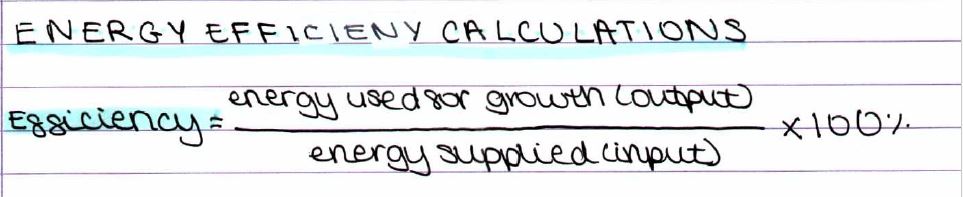 ENERGY EFFICIENY CALCULATIONS
Efficiency = energy used for growth (output) / energy supplied (input) × 100%